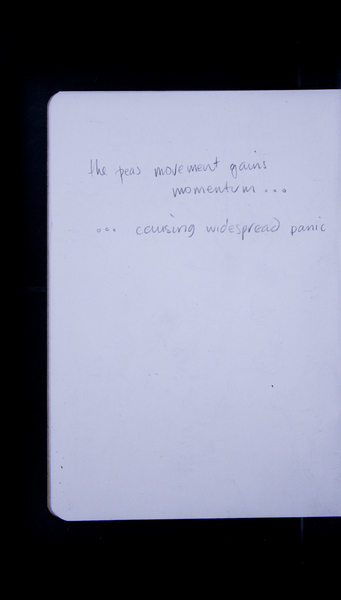 the peas movement gains
momentum ...
... causing widespread panic